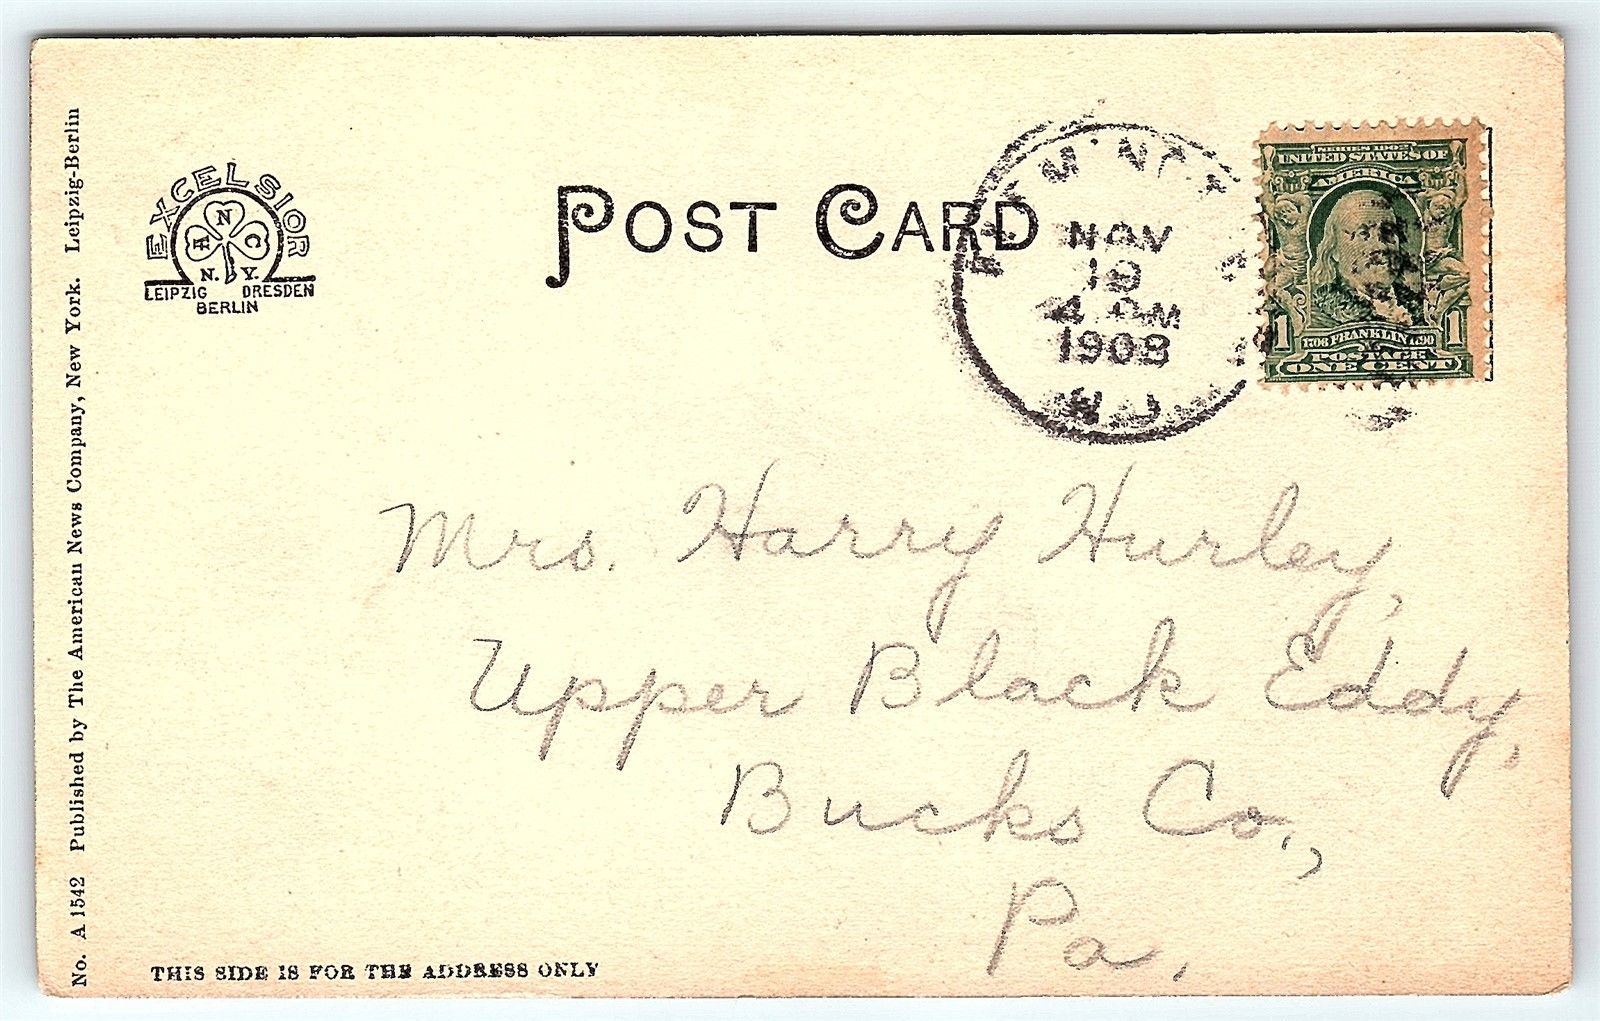 EXCELSIOR
A N C
N. Y.
LEIPZIG DRESDEN
BERLIN
POST CARD
NOV
19
4 PM
1908
N.J.
SERIES 1902
UNITED STATES OF
AMERICA
1 1706 FRANKLIN 1790 1
POSTAGE
ONE CENT
Mrs. Harry Hurley,
Upper Black Eddy,
Bucks Co.,
Pa.
THIS SIDE IS FOR THE ADDRESS ONLY
No. A 1542 Published by The American News Company, New York. Leipzig-Berlin